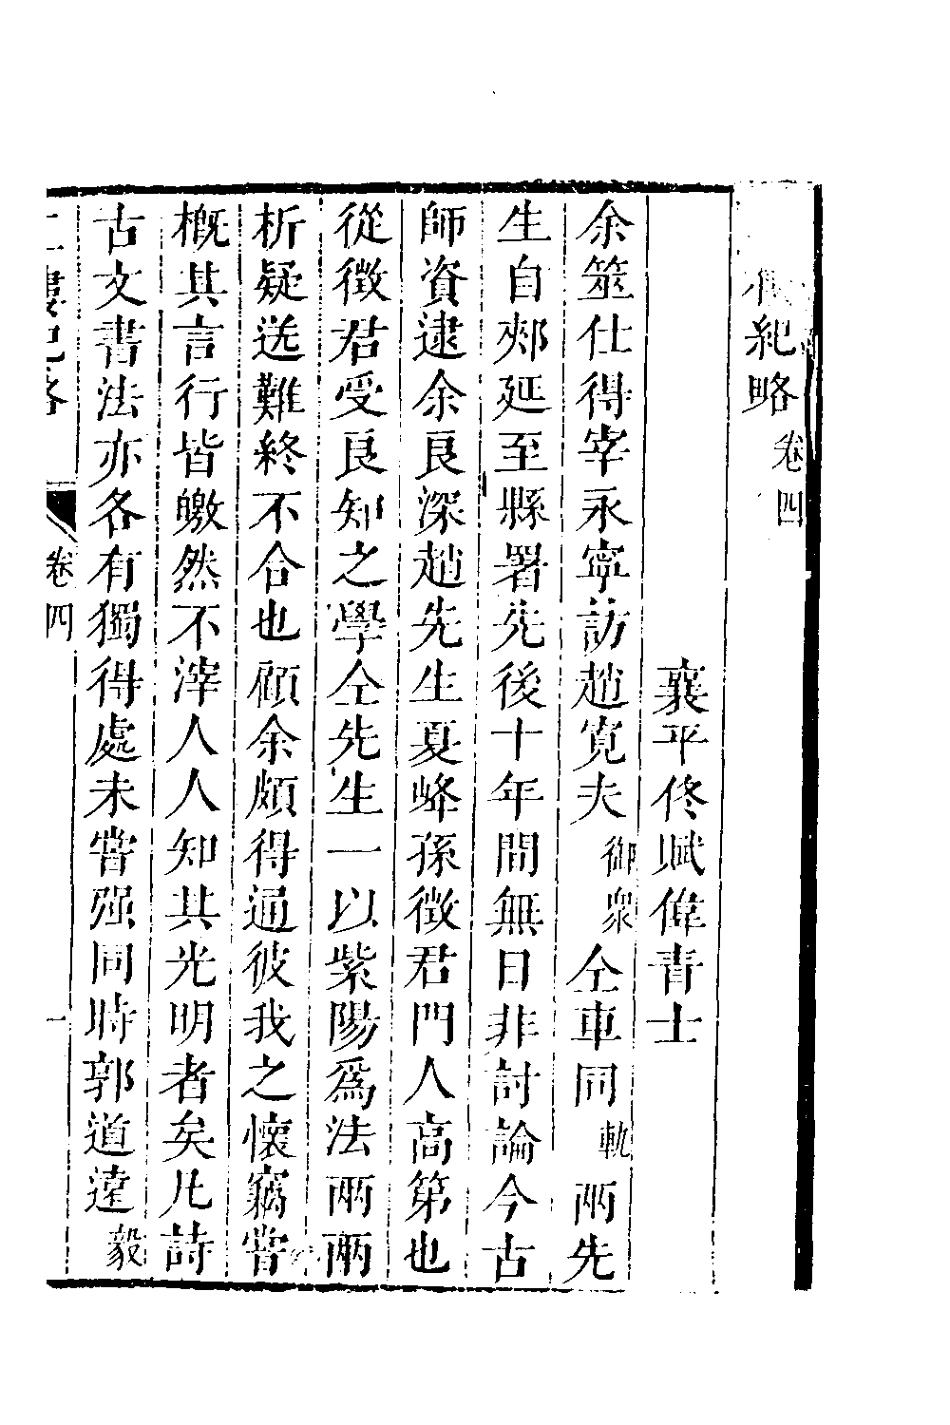 紀略卷四
襄平佟賦偉青士
余筮仕得宰永寧訪趙寬夫御衆仝車同軌兩先
生自郟延至縣署先後十年間無日非討論今古
師資逮余良深趙先生夏峰孫徵君門人高第也
從徵君受良知之學仝先生一以紫陽爲法兩兩
析疑送難終不合也顧余頗得通彼我之懷竊嘗
概其言行皆皦然不滓人人知其光明者矣凡詩
古文書法亦各有獨得處未嘗强同時郭道遠毅
二樓紀略 卷四 一